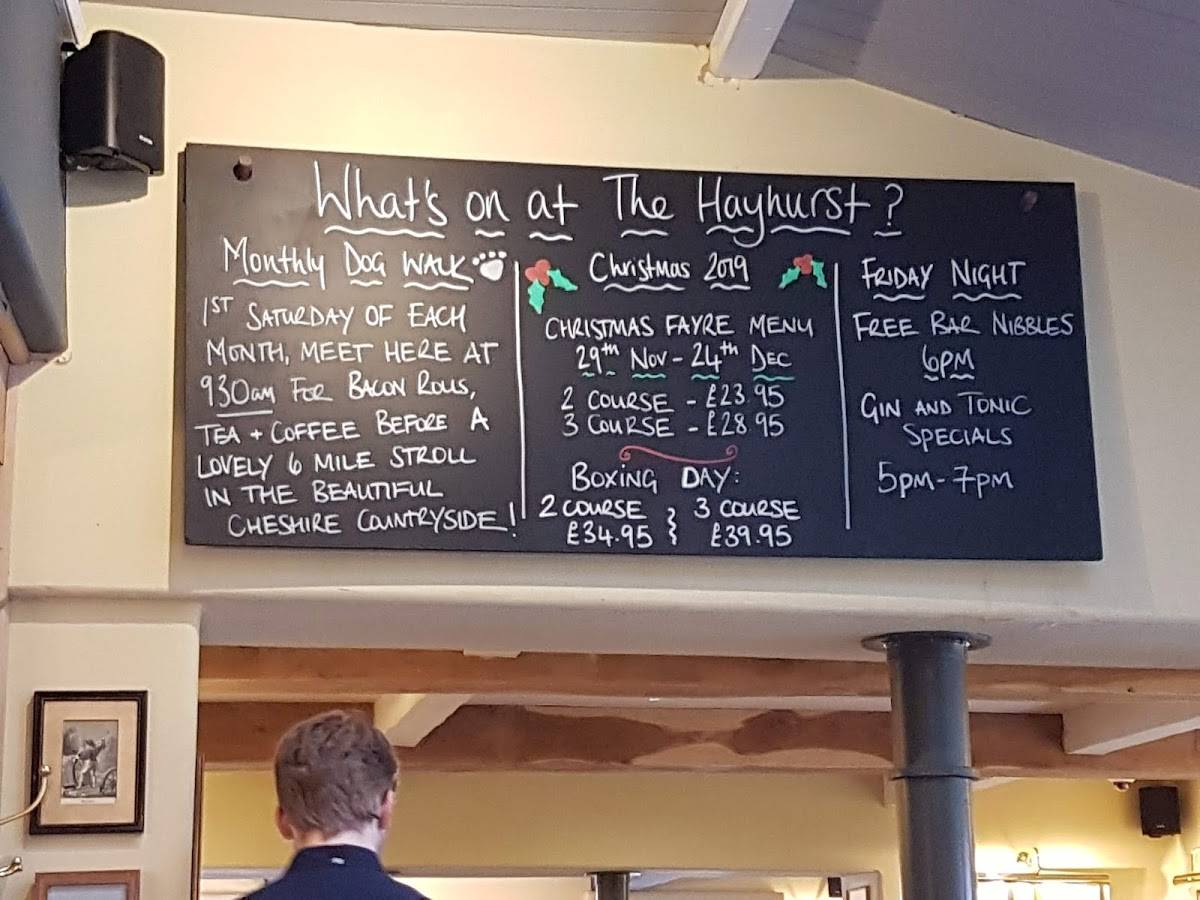 What's on at The Hayhurst?
Monthly Dog Walk
1ST SATURDAY OF EACH
MONTH, MEET HERE AT
930am FOR BACON ROLLS,
TEA + COFFEE BEFORE A
LOVELY 6 MILE STROLL
IN THE BEAUTIFUL
CHESHIRE COUNTRYSIDE!
Christmas 2019
CHRISTMAS FAYRE MENU
29th Nov - 24th Dec
2 COURSE - £23.95
3 COURSE - £28.95
BOXING DAY:
2 COURSE 3 COURSE
£34.95 £39.95
FRIDAY NIGHT
FREE BAR NIBBLES
6PM
GIN AND TONIC
SPECIALS
5PM-7PM